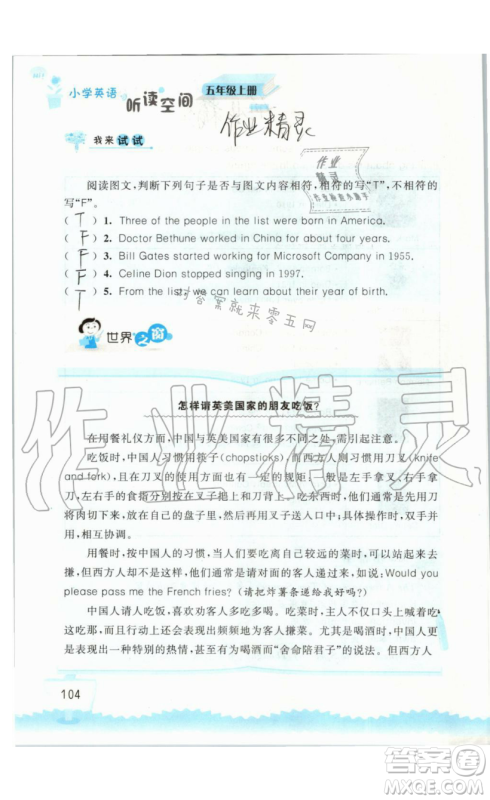 小学英语
听读空间
五年级上册
作业精灵
我来试试
作业
精灵
阅读图文，判断下列句子是否与图文内容相符，相符的写"T"，不相符
的写"F"。
( T ) 1. Three of the people in the list were born in America.
( F ) 2. Doctor Bethune worked in China for about four years.
( F ) 3. Bill Gates started working for Microsoft Company in 1955.
( F ) 4. Celine Dion stopped singing in 1997.
( T ) 5. From the list we can learn about their year of birth.
对答案就来零五网
世界之窗
作业精灵
怎样请英美国家的朋友吃饭？
在用餐礼仪方面，中国与英美国家有很多不同之处，需引起注意。
吃饭时，中国人习惯用筷子(chopsticks)，而西方人习惯用刀叉(knife
and fork)，而且刀叉的使用方面也有一定的规矩：一般是左手拿叉、右手拿
刀，左手拿叉时大的食指分别按在叉子把上和刀背上，吃东西时，他们通常是先用刀
将肉切下，放在自己的盘子里，然后用叉子送入口中；具体操作时，双手并
用，相互协调。
用餐时，按中国人的习惯，我们常常站起来去搛离自己比较远的菜，即
搛菜，但西方人通常是请对面的客人递来递去，如他们常说：Would you
please pass me the French fries? (请把炸薯条递给我好吗？)
中国人请人吃饭，喜欢劝客人多吃多喝。吃菜时，主人不仅口头让人，
更是表现出积极的行动而频频地为客人搛菜。尤其是喝酒时，中国人更
是表现出一种特别的热情，甚至有为喝酒而"舍命陪君子"的说法。但西方人
104
答案圈
MXQE.COM